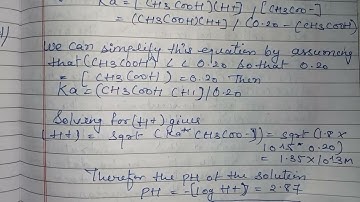 Ka = [CH3COOH][H+] / [CH3COO-]
= (CH3COOH)(H+) / (0.20 - (CH3COOH)
we can simplify this equation by assuming
that (CH3COOH) << 0.20 so that 0.20
= [CH3COOH) = 0.20 Then
Ka = (CH3COOH CH+]/0.20
Solving for (H+) gives
(H+) = sqrt (Ka* CH3COO-)) = sqrt (1.8 x
10 15* 0.20)
= 1.35 x 10 13 M
Therefor the pH of the solution
PH = -[log H+] = 2.87